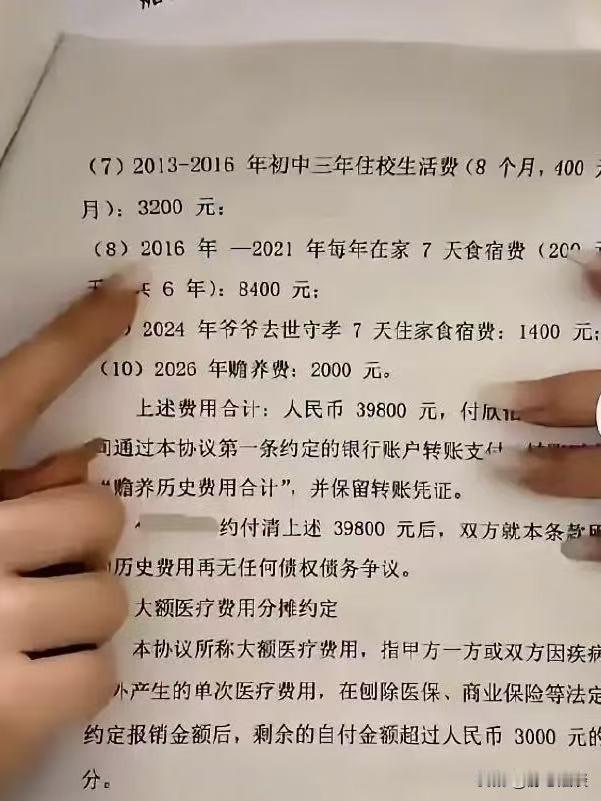 （7）2013-2016 年初中三年住校生活费（8 个月，400
月）：3200 元；
（8）2016 年 —2021 年每年在家 7 天食宿费（200
共 6 年）：8400 元；
2024 年爷爷去世守孝 7 天住家食宿费：1400 元；
（10）2026 年赡养费：2000 元。
上述费用合计：人民币 39800 元，付欣
间通过本协议第一条约定的银行账户转账支付
“赡养历史费用合计”，并保留转账凭证。
约付清上述 39800 元后，双方就本条款
历史费用再无任何债权债务争议。
大额医疗费用分摊约定
本协议所称大额医疗费用，指甲方一方或双方因疾病
外产生的单次医疗费用，在刨除医保、商业保险等法定
约定报销金额后，剩余的自付金额超过人民币 3000 元的
分。